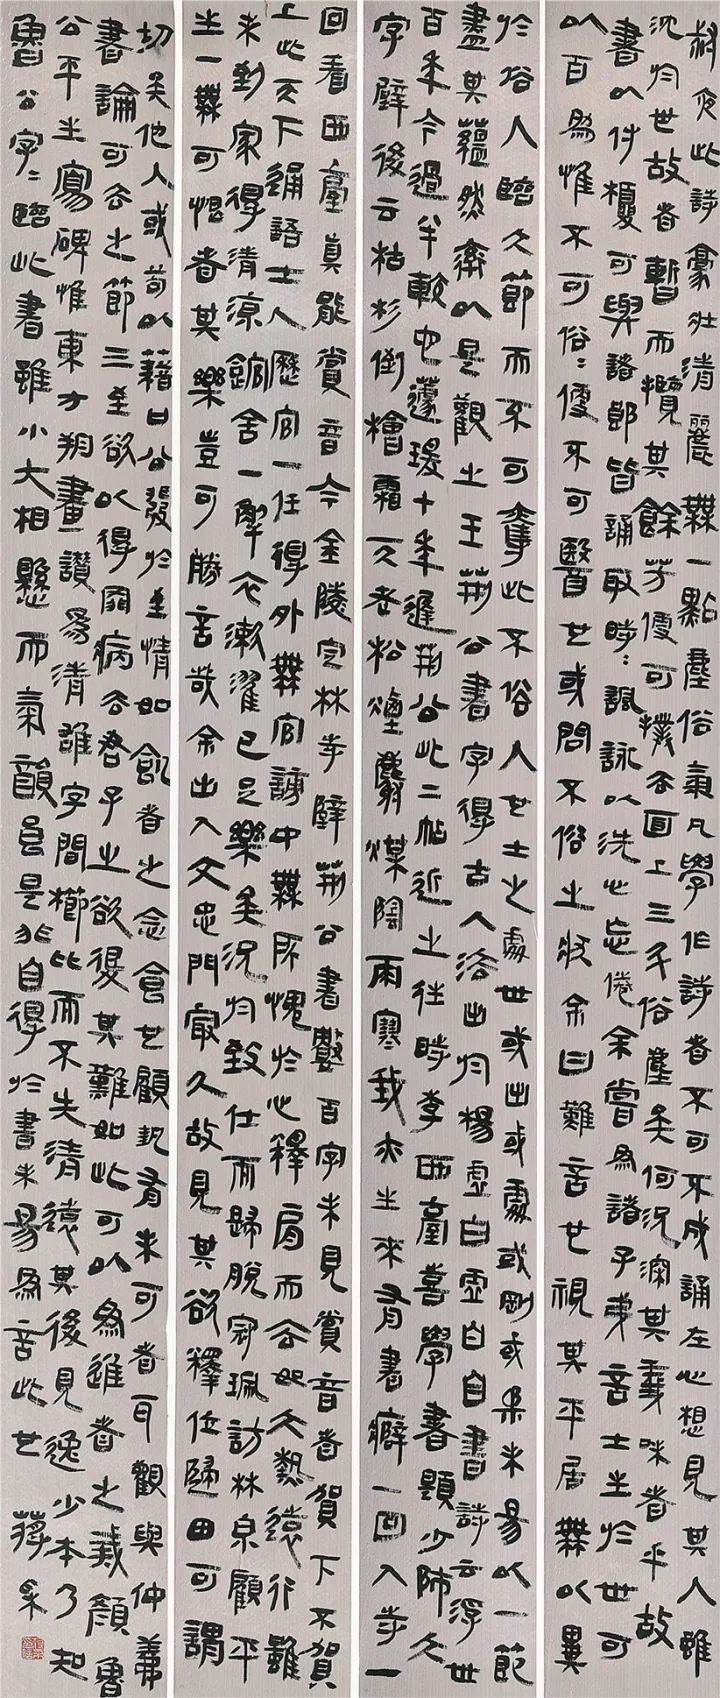 叔夜此詩豪壯清麗無一點塵俗氣凡學作詩者不可不成誦在心想見其人雖
沈於世故者暫而攬其餘芳便可撲去面上三斗俗塵矣何況深其義味者乎故
書以付榎可與諸郎皆誦取時〻諷詠以洗心忘倦余嘗為諸子弟言士生於世可
以百為惟不可俗〻便不可醫也或問不俗之狀余曰難言也視其平居無以異
於俗人臨大節而不可奪此不俗人也士之處世或出或處或剛或柔未易以一節
盡其蘊然率以是觀之王荊公書字得古人法出於楊虛白虛白自書詩云浮世
百年今過半較它蘧瑗十年遲荊公此二帖近之往時李西臺喜學書題少師大
字壁後云枯杉倒檜霜天老松煙麝煤陰雨寒我亦生來有書癖一回入寺一
回看西臺真能賞音今金陵定林寺壁荊公書數百字未見賞音者賀下不賀
上此天下通語士人歷官一任得外無官謗中無所愧於心釋肩而去如大熱遠行雖
未到家得清涼館舍一解衣漱濯已足樂矣況於致仕而歸脫冠珮訪林泉顧平
生一無可恨者其樂豈可勝言哉余出入文忠門最久故見其欲釋位歸田可謂
切矣他人或苟以藉口公發於至情如飢者之念食也顧勢有未可者耳觀與仲義
書論可去之節三至欲以得罪病去君子之欲退其難如此可以為進者之戒顏魯
公平生寫碑惟東方朔畫讚為清雄字間櫛比而不失清遠其後見逸少本乃知
魯公字〻臨此書雖小大相懸而氣韻良是非自得於書未易為言此也 蔣采